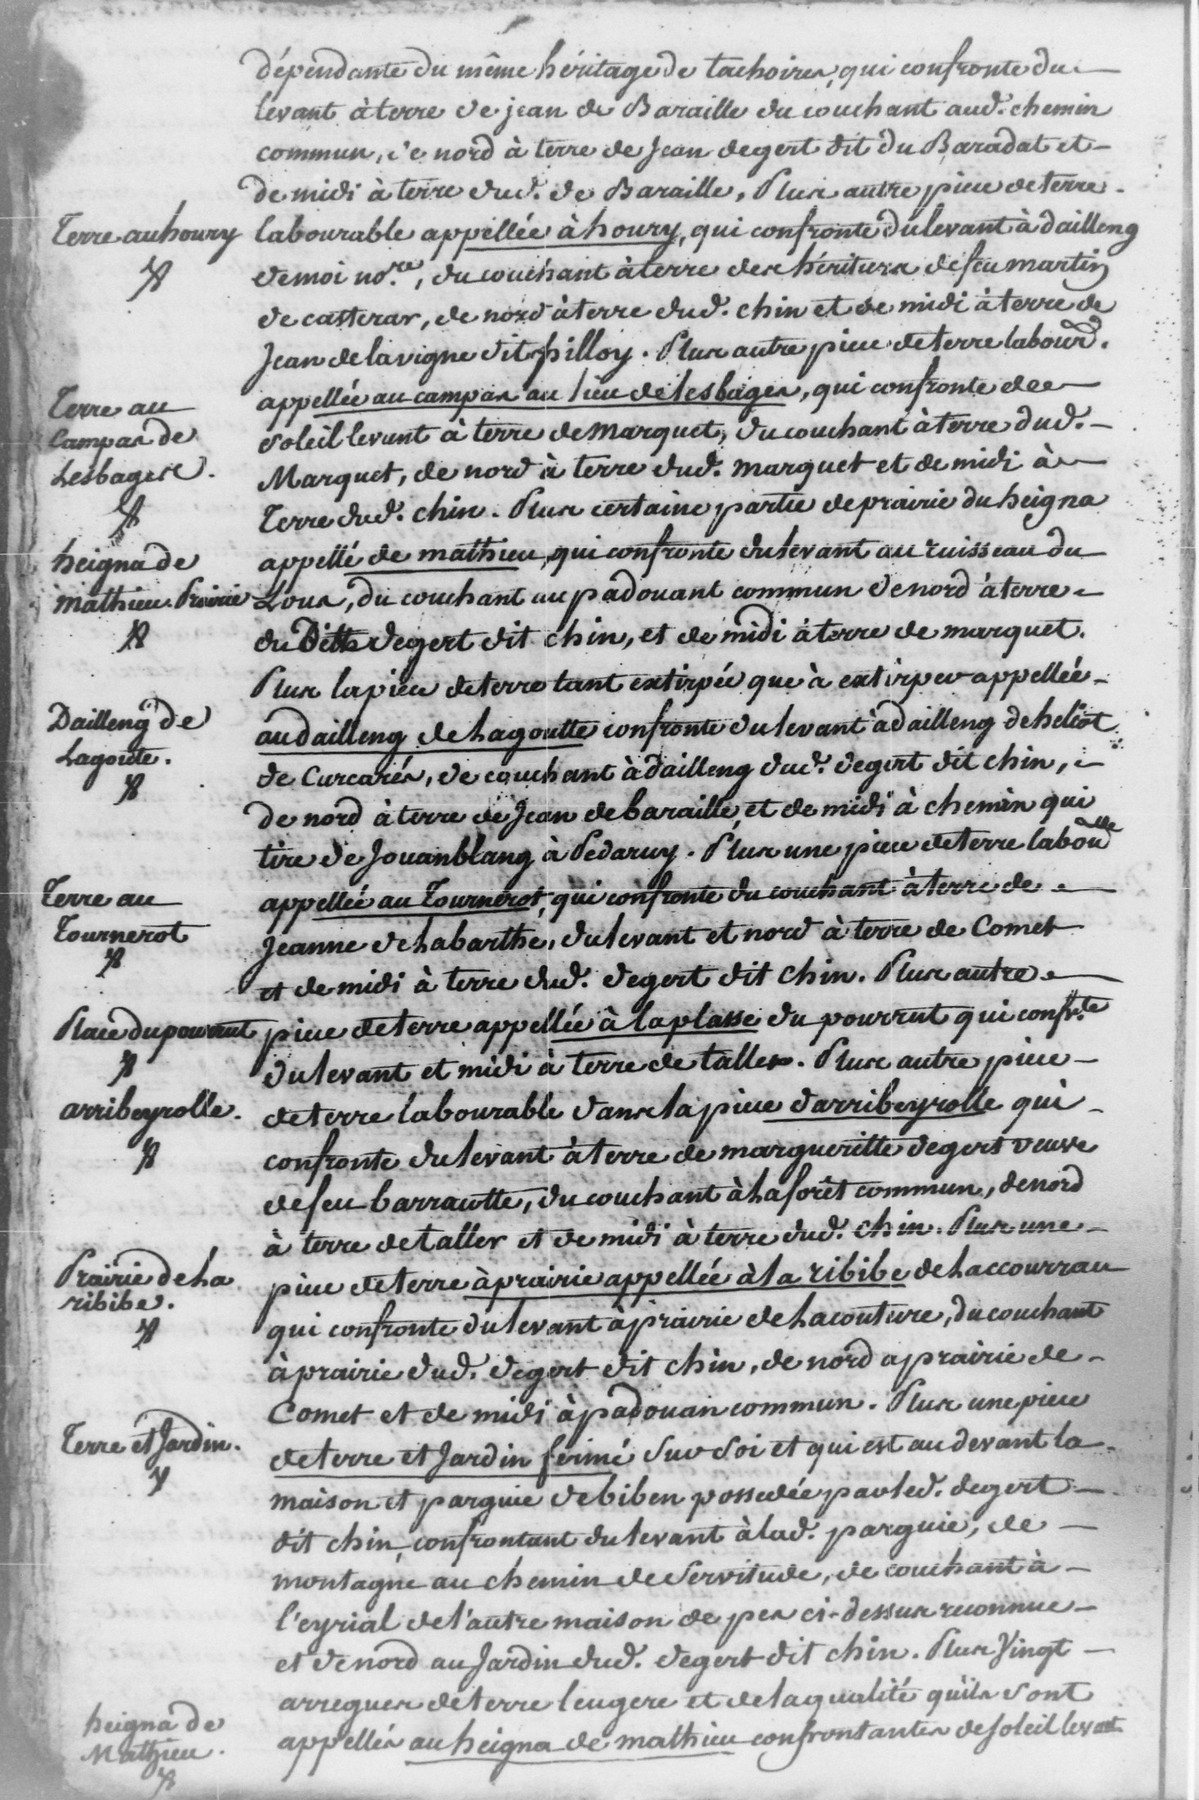 dépendante du même héritage de tachoires, qui confronte du
levant à terre de jean de Baraille du couchant aud. chemin
commun, de nord à terre de Jean degert dit du Baradat et
de midi à terre dud. de Baraille, Plus autre piece de terre
Terre au houry
labourable appellée à houry, qui confronte du levant à dailleng
de moi no.re, du couchant à terre des héritiers de feu martin
de casterar, de nord à terre dud. chin et de midi à terre de
Jean de lavigne dit pilloy. Plus autre piece de terre labour.
Terre au
Campas de
Lesbages.
appellée au campas au lieu de lesbages, qui confronte de
soleil levant à terre de Marquet, du couchant à terre dud.
Marquet, de nord à terre dud. marquet et de midi à
Terre dud. chin. Plus certaine partie de prairie du heigna
heigna de
mathieu Prairie
appellé de mathieu, qui confronte du levant au ruisseau du
Lous, du couchant au padouant commun de nord à terre
du degert dit chin, et de midi à terre de marquet.
Plus la piece de terre tant extirpée que à extirper appellée
Dailleng de
Lagoute.
au dailleng de Lagoutte confronte du levant à dailleng de heliot
de Curcarés, de couchant à dailleng dud. degert dit chin,
de nord à terre de Jean de baraille, et de midi à chemin qui
tire de Jouanblang à Pedaruy. Plus une piece de terre labou.elle
Terre au
Tournerot
appellée au Tournerot, qui confronte du couchant à terre de
Jeanne de Labarthe, du levant et nord à terre de Comet
et de midi à terre dud. degert dit chin. Plus autre
Place du pourrut
piece de terre appellée à la plasse du pourrut qui confr.te
du levant et midi à terre de taller. Plus autre piece
arribeyrolle.
de terre labourable dans la piece d'arribeyrolle qui
confronte du levant à terre de margueritte degert veuve
de feu barrautte, du couchant à la forêt commun, de nord
à terre de taller et de midi à terre dud. chin. Plus une
Prairie de La
ribibe.
piece de terre à prairie appellée à la ribibe de Laccourrau
qui confronte du levant à prairie de Lacouture, du couchant
à prairie dud. degert dit chin, de nord a prairie de
Comet et de midi à padouan commun. Plus une piece
Terre et Jardin.
de terre et Jardin fermé sur soi et qui est au devant la
maison et parguie de biben possedée par led. degert
dit chin, confrontant du levant à lad. parguie, de
montagne au chemin de Servitude, de couchant à
l'eyrial de l'autre maison de pes ci-dessus reconnue
et de nord au Jardin dud. degert dit chin. Plus Vingt
arregues de terre leugere et de la qualité qu'ils sont
heigna de
Mathieu.
appellés au heigna de mathieu confrontantes de soleil levant